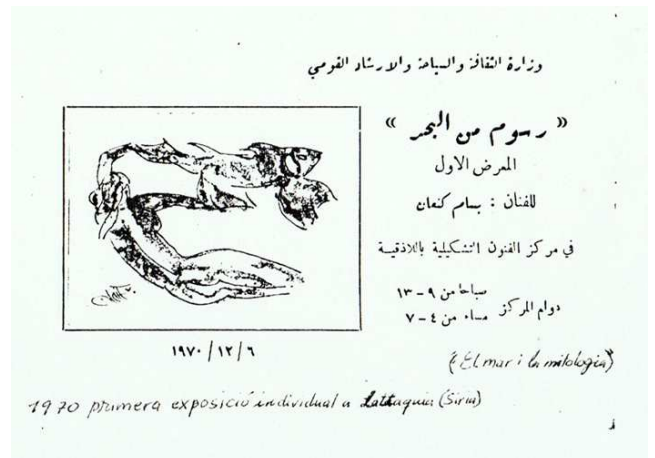 وزارة الثقافة والسياحة والارشاد القومي
« رسوم من البحر »
المعرض الاول
للفنان : بسام كنعان
في مركز الفنون التشكيلية باللاذقية
دوام المركز
صباحا من ٩ – ١٣
مساء من ٤ – ٧
١٩٧٠/١٢/٦
("El mar i la mitologia")
1970 primera exposició individual a Lattaquia (Síria)